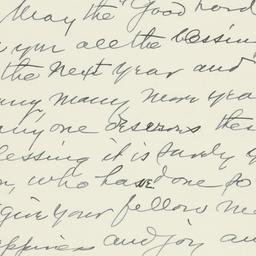 May the "Good Lord
you all the blessin
the next year and
many, many more yea
anyone deserves the
lessing it is surely y
who have done so
give your fellow me
appiness and joy an